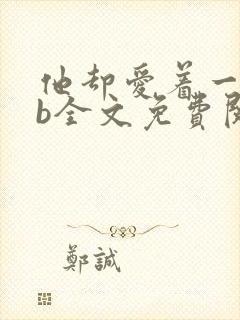 他却爱着一
b全文免費閱
鄭誠